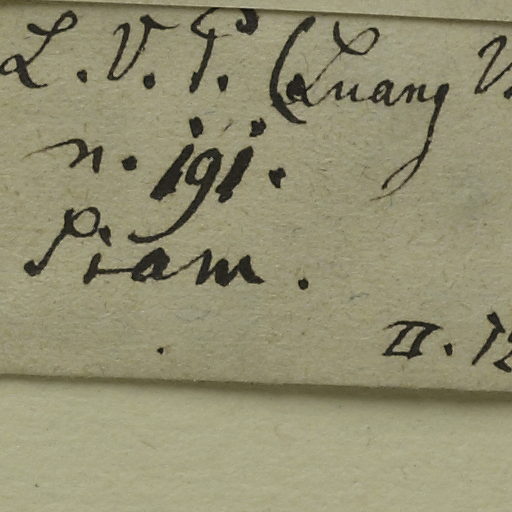 L. V. P. (Luang V.
n. 191.
Siam.
II. 12